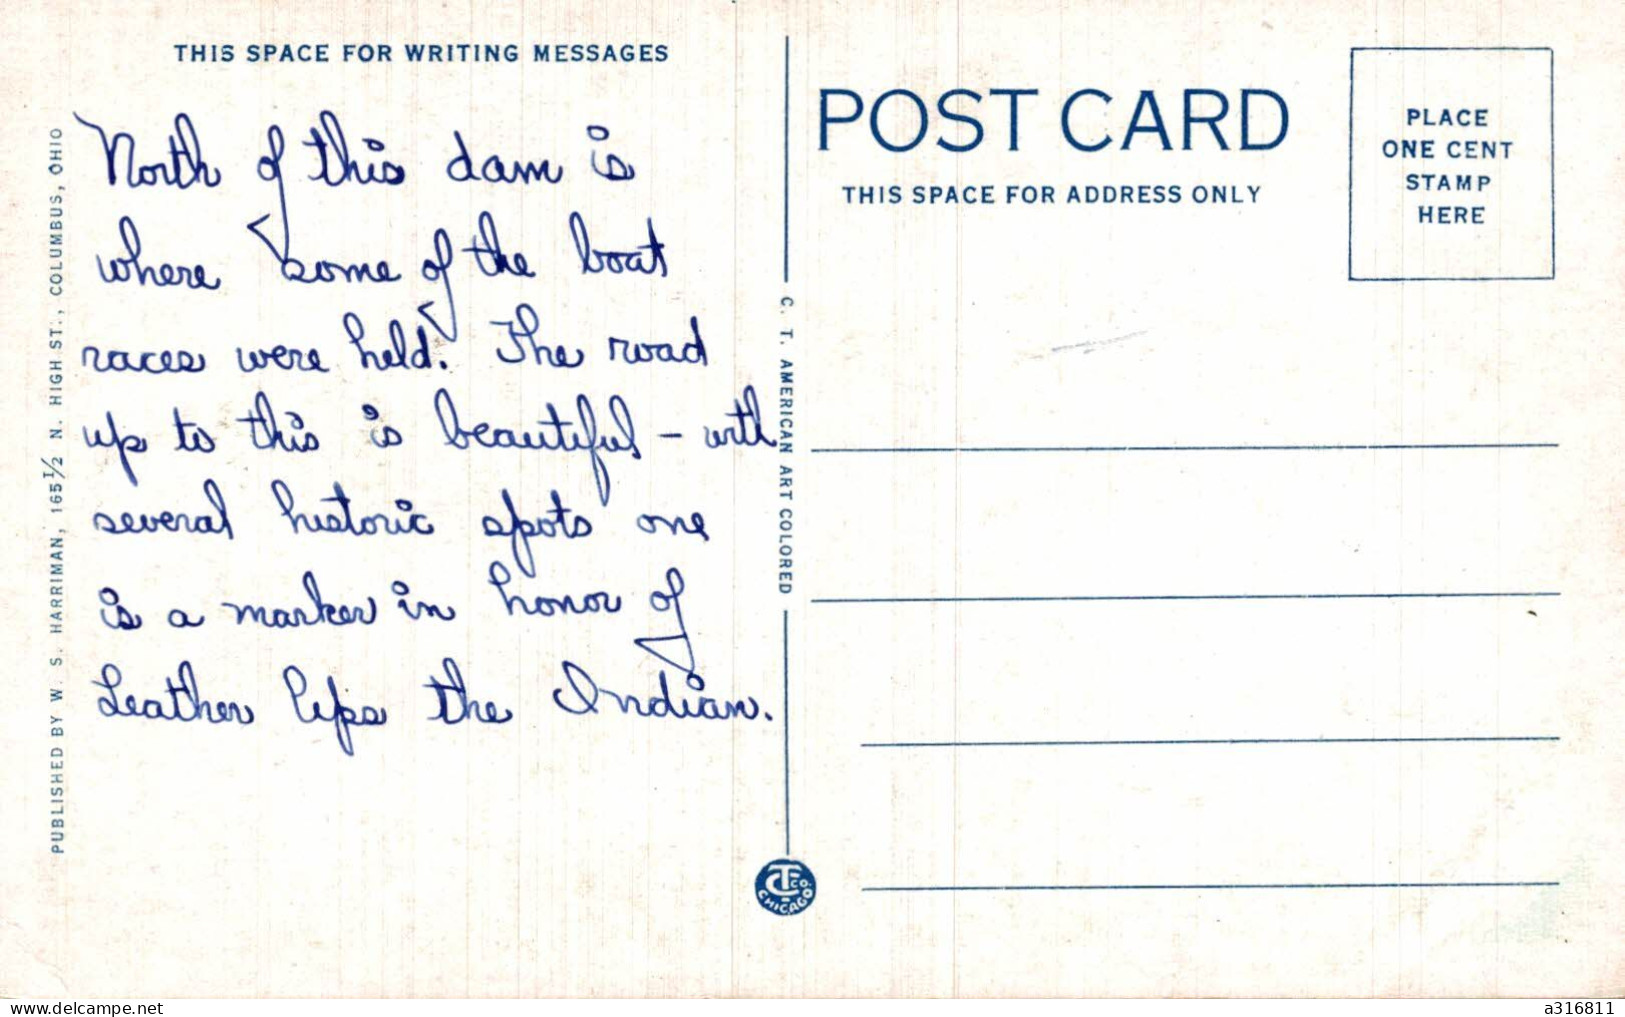 THIS SPACE FOR WRITING MESSAGES
North of this dam is
where some of the boat
races were held. The road
up to this is beautiful - with
several historic spots one
is a marker in honor of
Leather lips the Indian.
PUBLISHED BY W. S. HARRIMAN, 165½ N. HIGH ST., COLUMBUS, OHIO
C. T. AMERICAN ART COLORED
CT CO. CHICAGO
POST CARD
THIS SPACE FOR ADDRESS ONLY
PLACE
ONE CENT
STAMP
HERE
©delcampe.net
a316811